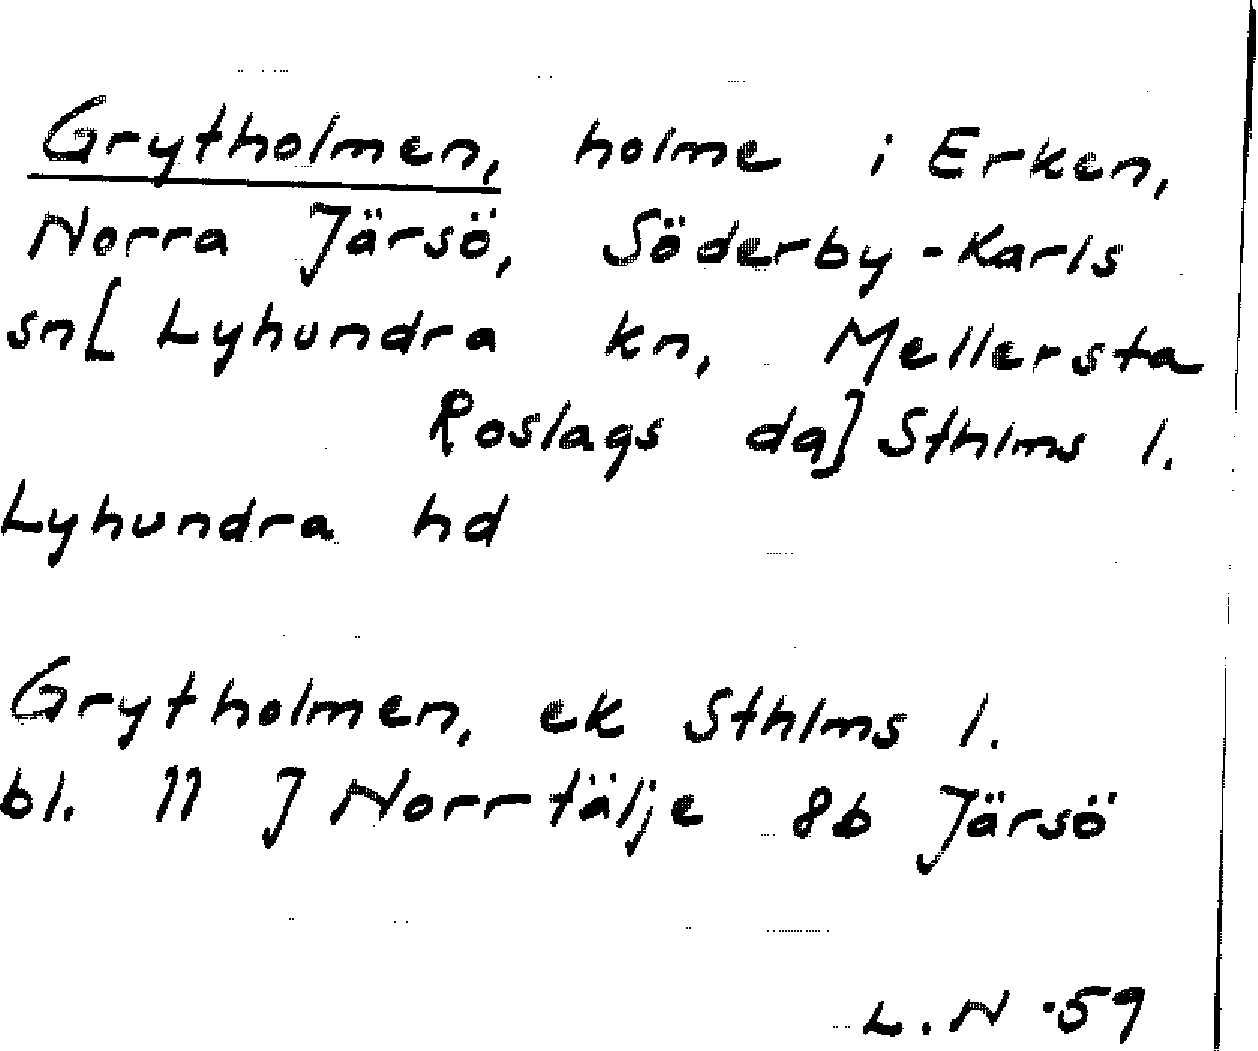 Grytholmen, holme i Erken,
Norra Järsö, Söderby-Karls
sn[ Lyhundra kn, Mellersta
Roslags dq] Sthlms l.
Lyhundra hd
Grytholmen, ek Sthlms l.
bl. 11 J Norrtälje 8b Järsö
L.N -59